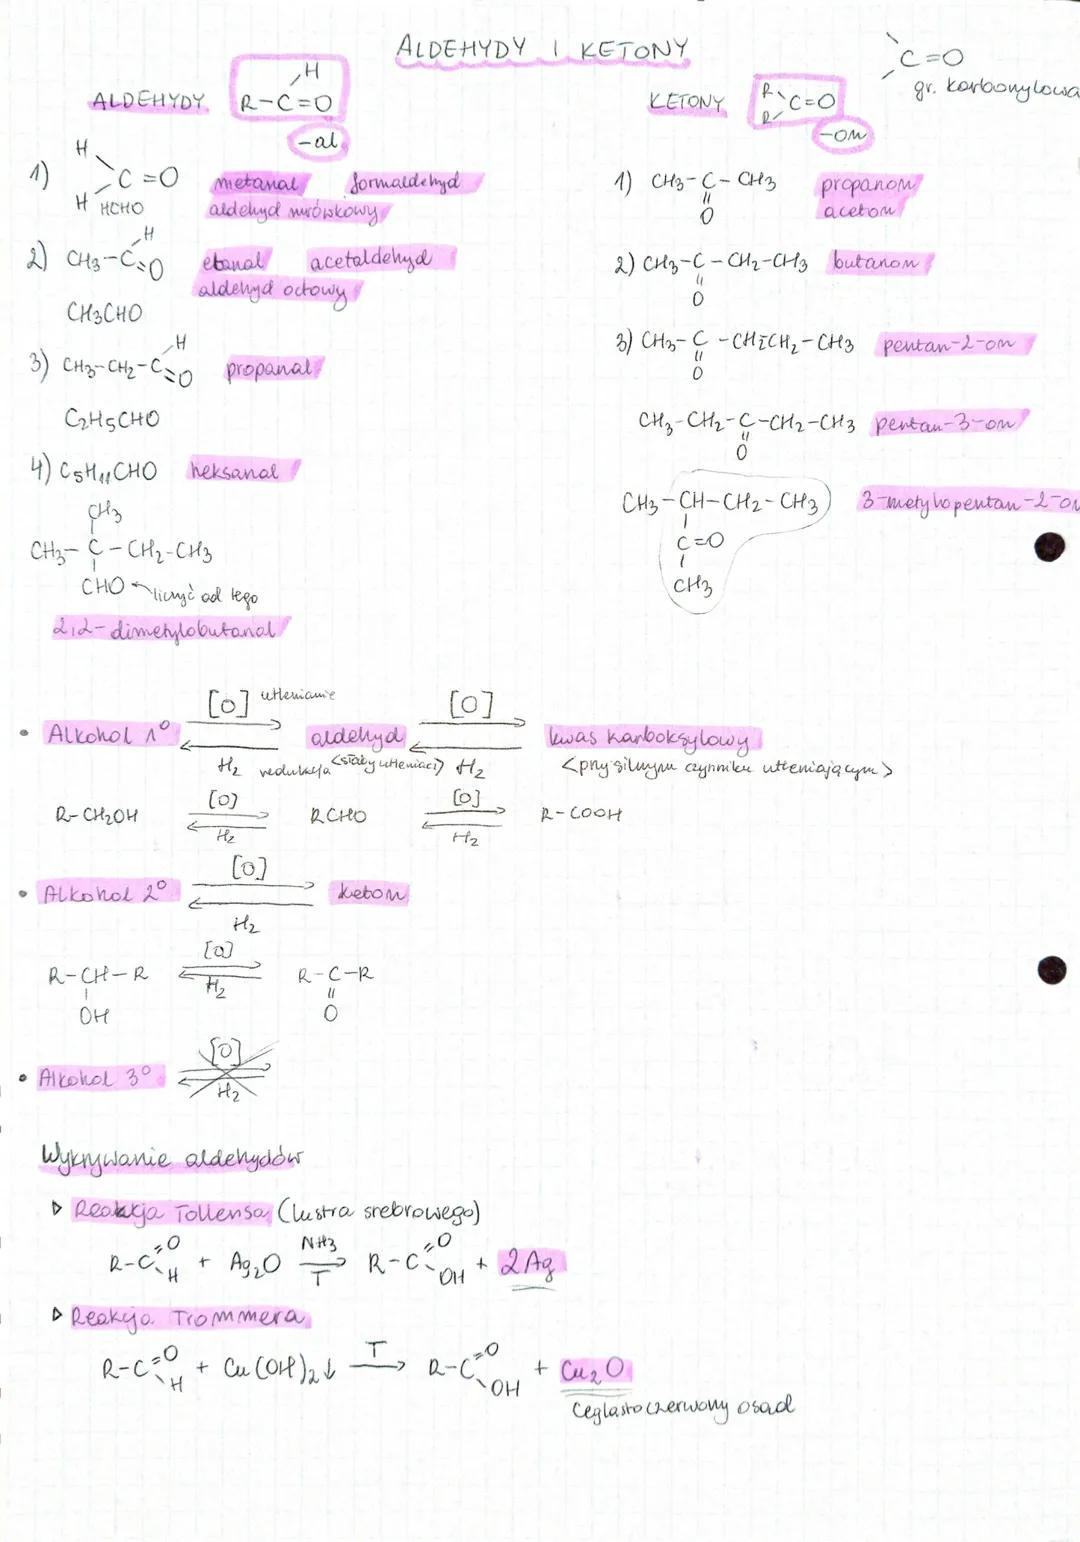 ALDEHYDY I KETONY
C=O
gr. karbonylowa
ALDEHYDY
H
R-C=O
-al
KETONY
R
R
C=O
-on
1) H
H
C=O
HCHO
metanal formaldehyd
aldehyd mrówkowy
2) CH3-C=O
H
CH3CHO
etanal acetaldehyd
aldehyd octowy
3) CH3-CH2-C=O
H
C2H5CHO
propanal
4) C5H11CHO heksanal
CH3
CH3-C-CH2-CH3
CHO liczyć od tego
2,2-dimetylobutanal
1) CH3-C-CH3
O
propanon
aceton
2) CH3-C-CH2-CH3 butanon
O
3) CH3-C-CH2CH2-CH3 pentan-2-on
O
CH3-CH2-C-CH2-CH3 pentan-3-on
O
CH3-CH-CH2-CH3 3-metylopentan-2-on
C=O
CH3
[O] utlenianie [O]
• Alkohol 1° aldehyd kwas karboksylowy
H2 redukcja <słaby utleniacz> H2 <przy silnym czynniku utleniającym>
[O] [O]
R-CH2OH RCHO R-COOH
H2 H2
[O]
• Alkohol 2° keton
H2
[O]
R-CH-R R-C-R
H2
OH O
[O]
• Alkohol 3°
H2
Wykrywanie aldehydów
▷ Reakcja Tollensa (lustra srebrowego)
R-C=O H + Ag2O NH3 T → R-C=O OH + 2Ag
▷ Reakcja Trommera
R-C=O H + Cu(OH)2↓ T → R-C=O OH + Cu2O
ceglastoczerwony osad